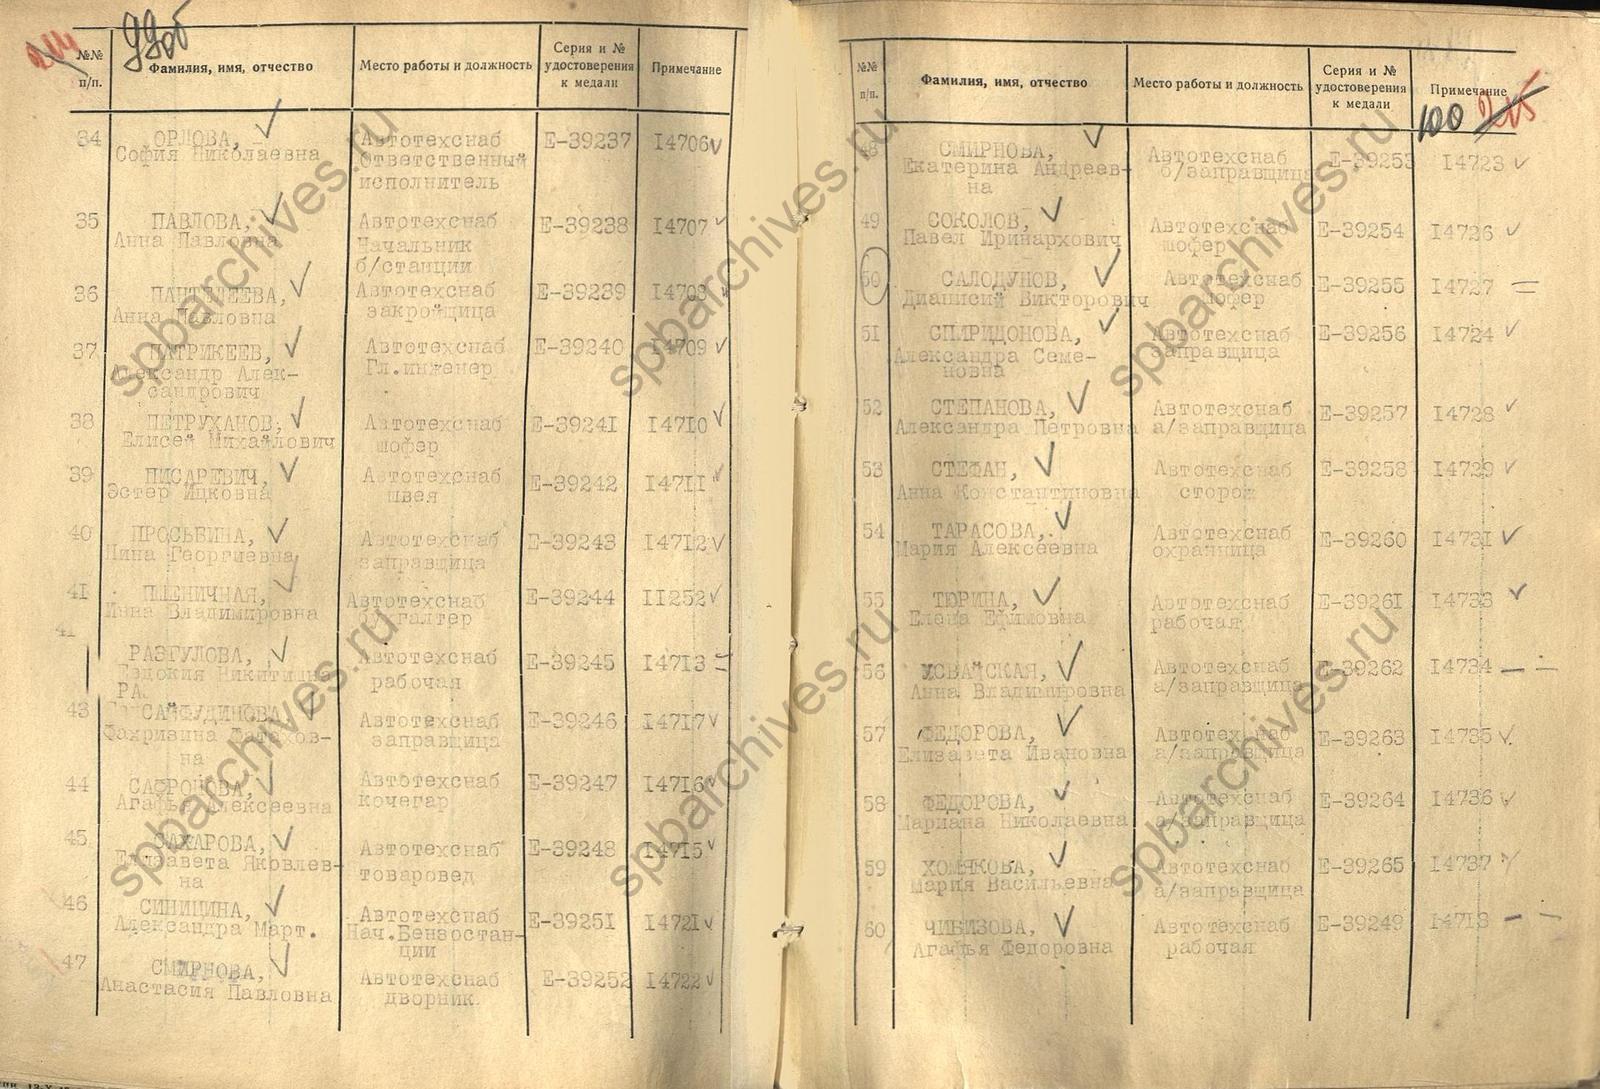 99об
№№
п/п.
Фамилия, имя, отчество
Место работы и должность
Серия и №
удостоверения
к медали
Примечание
34
ОРЛОВА,
София Николаевна
Автотехснаб
Ответственный
исполнитель
Е-39237
I4706
35
ПАВЛОВА,
Анна Павловна
Автотехснаб
Начальник
б/станции
Е-39238
I4707
36
ПАНТЕЛЕЕВА,
Анна Павловна
Автотехснаб
закройщица
Е-39239
I4708
37
ПАТРИКЕЕВ,
Александр Алек-
сандрович
Автотехснаб
Гл.инженер
Е-39240
I4709
38
ПЕТРУХАНОВ,
Елисей Михайлович
Автотехснаб
шофер
Е-3924I
I47I0
39
ПИСАРЕВИЧ,
Эстер Ицковна
Автотехснаб
швея
Е-39242
I47II
40
ПРОСЬБИНА,
Нина Георгиевна
Автотехснаб
заправщица
Е-39243
I47I2
4I
ПШЕНИЧНАЯ,
Инна Владимировна
Автотехснаб
бухгалтер
Е-39244
II252
4I
РАЗГУЛОВА,
Евдокия Никитична
РА.
Автотехснаб
рабочая
Е-39245
I47I3
43
САЙФУДИНОВА
на
Автотехснаб
заправщица
Е-39246
I47I7
44
САФРОНОВА,
Агафья Алексеевна
Автотехснаб
кочегар
Е-39247
I47I6
45
САХАРОВА,
Елизавета Яковлев-
на
Автотехснаб
товаровед
Е-39248
I47I5
46
СИНИЦИНА,
Александра Март.
Автотехснаб
Нач.Бензостан-
ции
Е-3925I
I472I
47
СМИРНОВА,
Анастасия Павловна
Автотехснаб
дворник
Е-39252
I4722
№№
п/п.
Фамилия, имя, отчество
Место работы и должность
Серия и №
удостоверения
к медали
Примечание
100 215
48
СМИРНОВА,
Екатерина Андреев-
на
Автотехснаб
б/заправщица
Е-39253
I4723
49
СОКОЛОВ,
Павел Иринархович
Автотехснаб
шофер
Е-39254
I4726
50
САЛОДУНОВ,
Дианисий Викторович
Автотехснаб
шофер
Е-39255
I4727
5I
СПИРИДОНОВА,
Александра Семе-
новна
Автотехснаб
заправщица
Е-39256
I4724
52
СТЕПАНОВА,
Александра Петровна
Автотехснаб
а/заправщица
Е-39257
I4728
53
СТЕФАН,
Анна Константиновна
Автотехснаб
сторож
Е-39258
I4729
54
ТАРАСОВА,
Мария Алексеевна
Автотехснаб
охранница
Е-39260
I473I
55
ТЮРИНА,
Елена Ефимовна
Автотехснаб
рабочая
Е-3926I
I4733
56
УСВАЙСКАЯ,
Анна Владимировна
Автотехснаб
а/заправщица
Е-39262
I4734
57
ФЕДОРОВА,
Елизавета Ивановна
Автотехснаб
а/заправщица
Е-39263
I4735
58
ФЕДОРОВА,
Мариана Николаевна
Автотехснаб
а/заправщица
Е-39264
I4736
59
ХОМЯКОВА,
Мария Васильевна
Автотехснаб
а/заправщица
Е-39265
I4737
60
ЧИБИЗОВА,
Агафья Федоровна
Автотехснаб
рабочая
Е-39249
I47I8
spbarchives.ru
spbarchives.ru
spbarchives.ru
spbarchives.ru
spbarchives.ru
spbarchives.ru